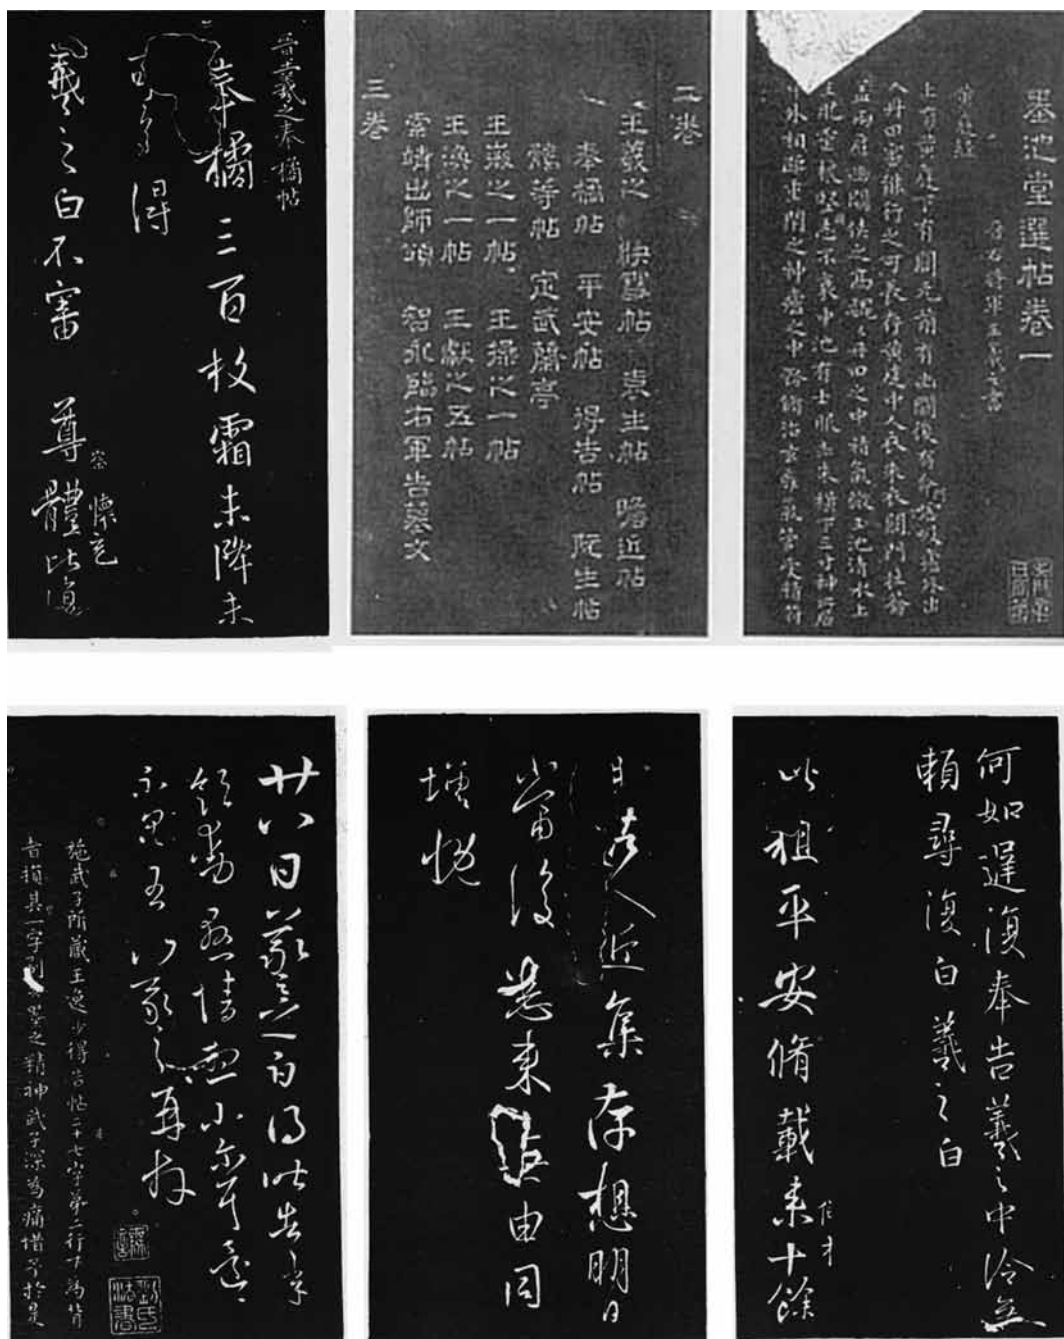 墨池堂選帖卷一
晉右將軍王羲之書
黃庭經
上有黃庭下有關元前有幽闕後有命門噓吸廬外出
入丹田審能行之可長存黃庭中人衣朱衣關門牡籥
蓋兩扉幽闕俠之高巍巍丹田之中精氣微玉池清水上
生肥靈根堅志不衰中池有士服赤朱橫下三寸神所居
中外相距重閉之神廬之中務脩治玄膺氣管受精符
二卷
王羲之 快雪帖 袁生帖 瞻近帖
奉橘帖 平安帖 得告帖 阮生帖
等帖 定武蘭亭
王徽之一帖 王操之一帖
王渙之一帖 王獻之五帖
索靖出師頌 智永臨右軍告墓文
三卷
晉王羲之奉橘帖
奉橘三百枚霜未降未
可多得
察 懷充
羲之白不審 尊體比復
何如遲復奉告羲之中冷無
賴尋復白羲之白
此粗平安脩載來十餘
日諸人近集存想明日
當復悉來無由同
增慨
廿八日羲之白得昨告承
飲動懸情想小爾耳還
不具 羲之再拜
施武子所藏王逸少得告帖二十七字第二行下為背
者損其一字 墨之精神武子深為痛惜予於是